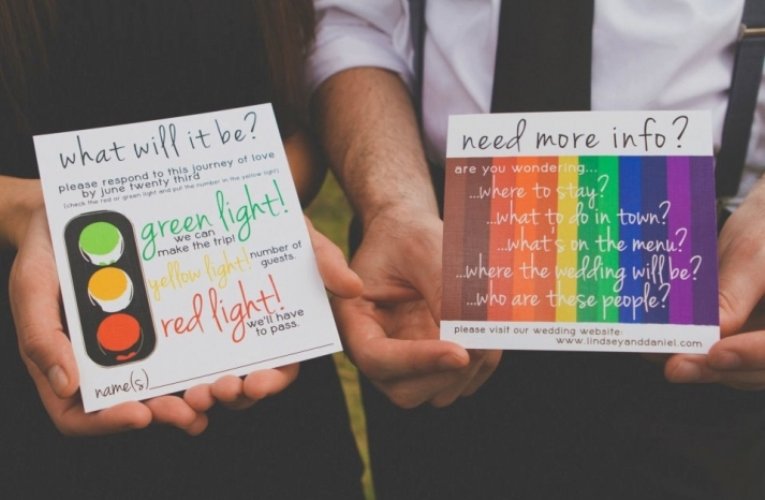 what will it be?
please respond to this journey of love
by june twenty third
(check the red or green light and put the number in the yellow light)
green light!
we can
make the trip!
yellow light!
number of
guests.
red light!
we'll have
to pass.
name(s)
need more info?
are you wondering...
...where to stay?
...what to do in town?
...what's on the menu?
...where the wedding will be?
...who are these people?
please visit our wedding website:
www.lindseyanddaniel.com